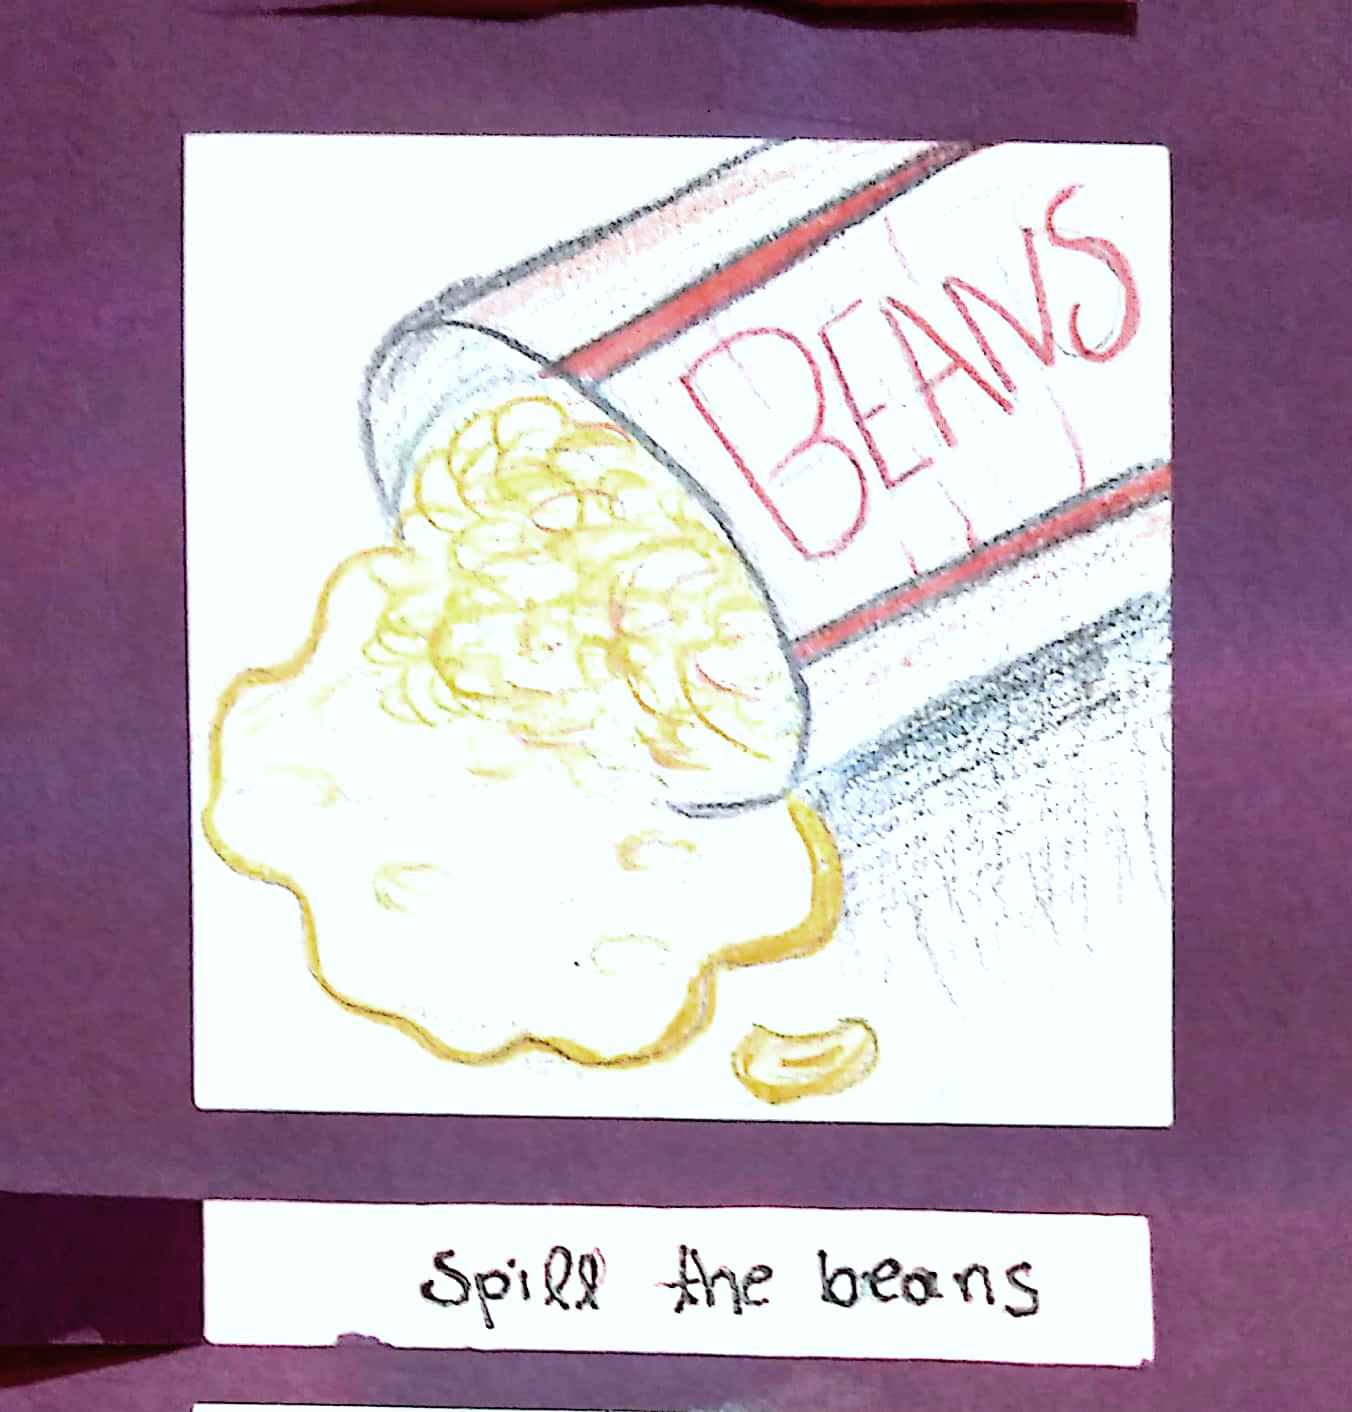 BEANS
Spill the beans